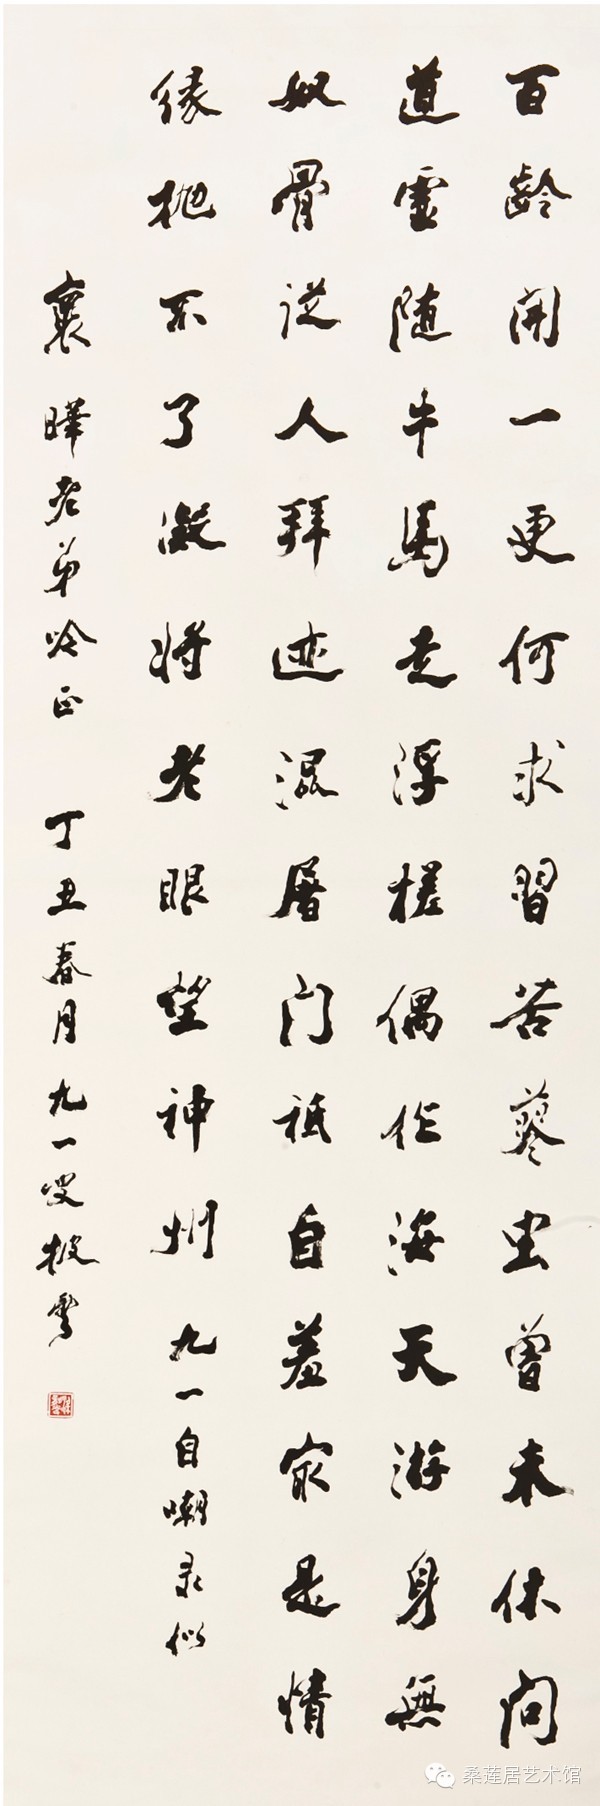 百齡開一更何求習苦蓼虫曾未休问
道靈随牛馬走浮槎偶作海天游身無
奴骨從人拜迹混屠门祗自羞家是情
緣抛不了凝将老眼望神州 九一自嘲录似
襄曄老弟吟正 丁丑春月 九一叟披雲
桑莲居艺术馆